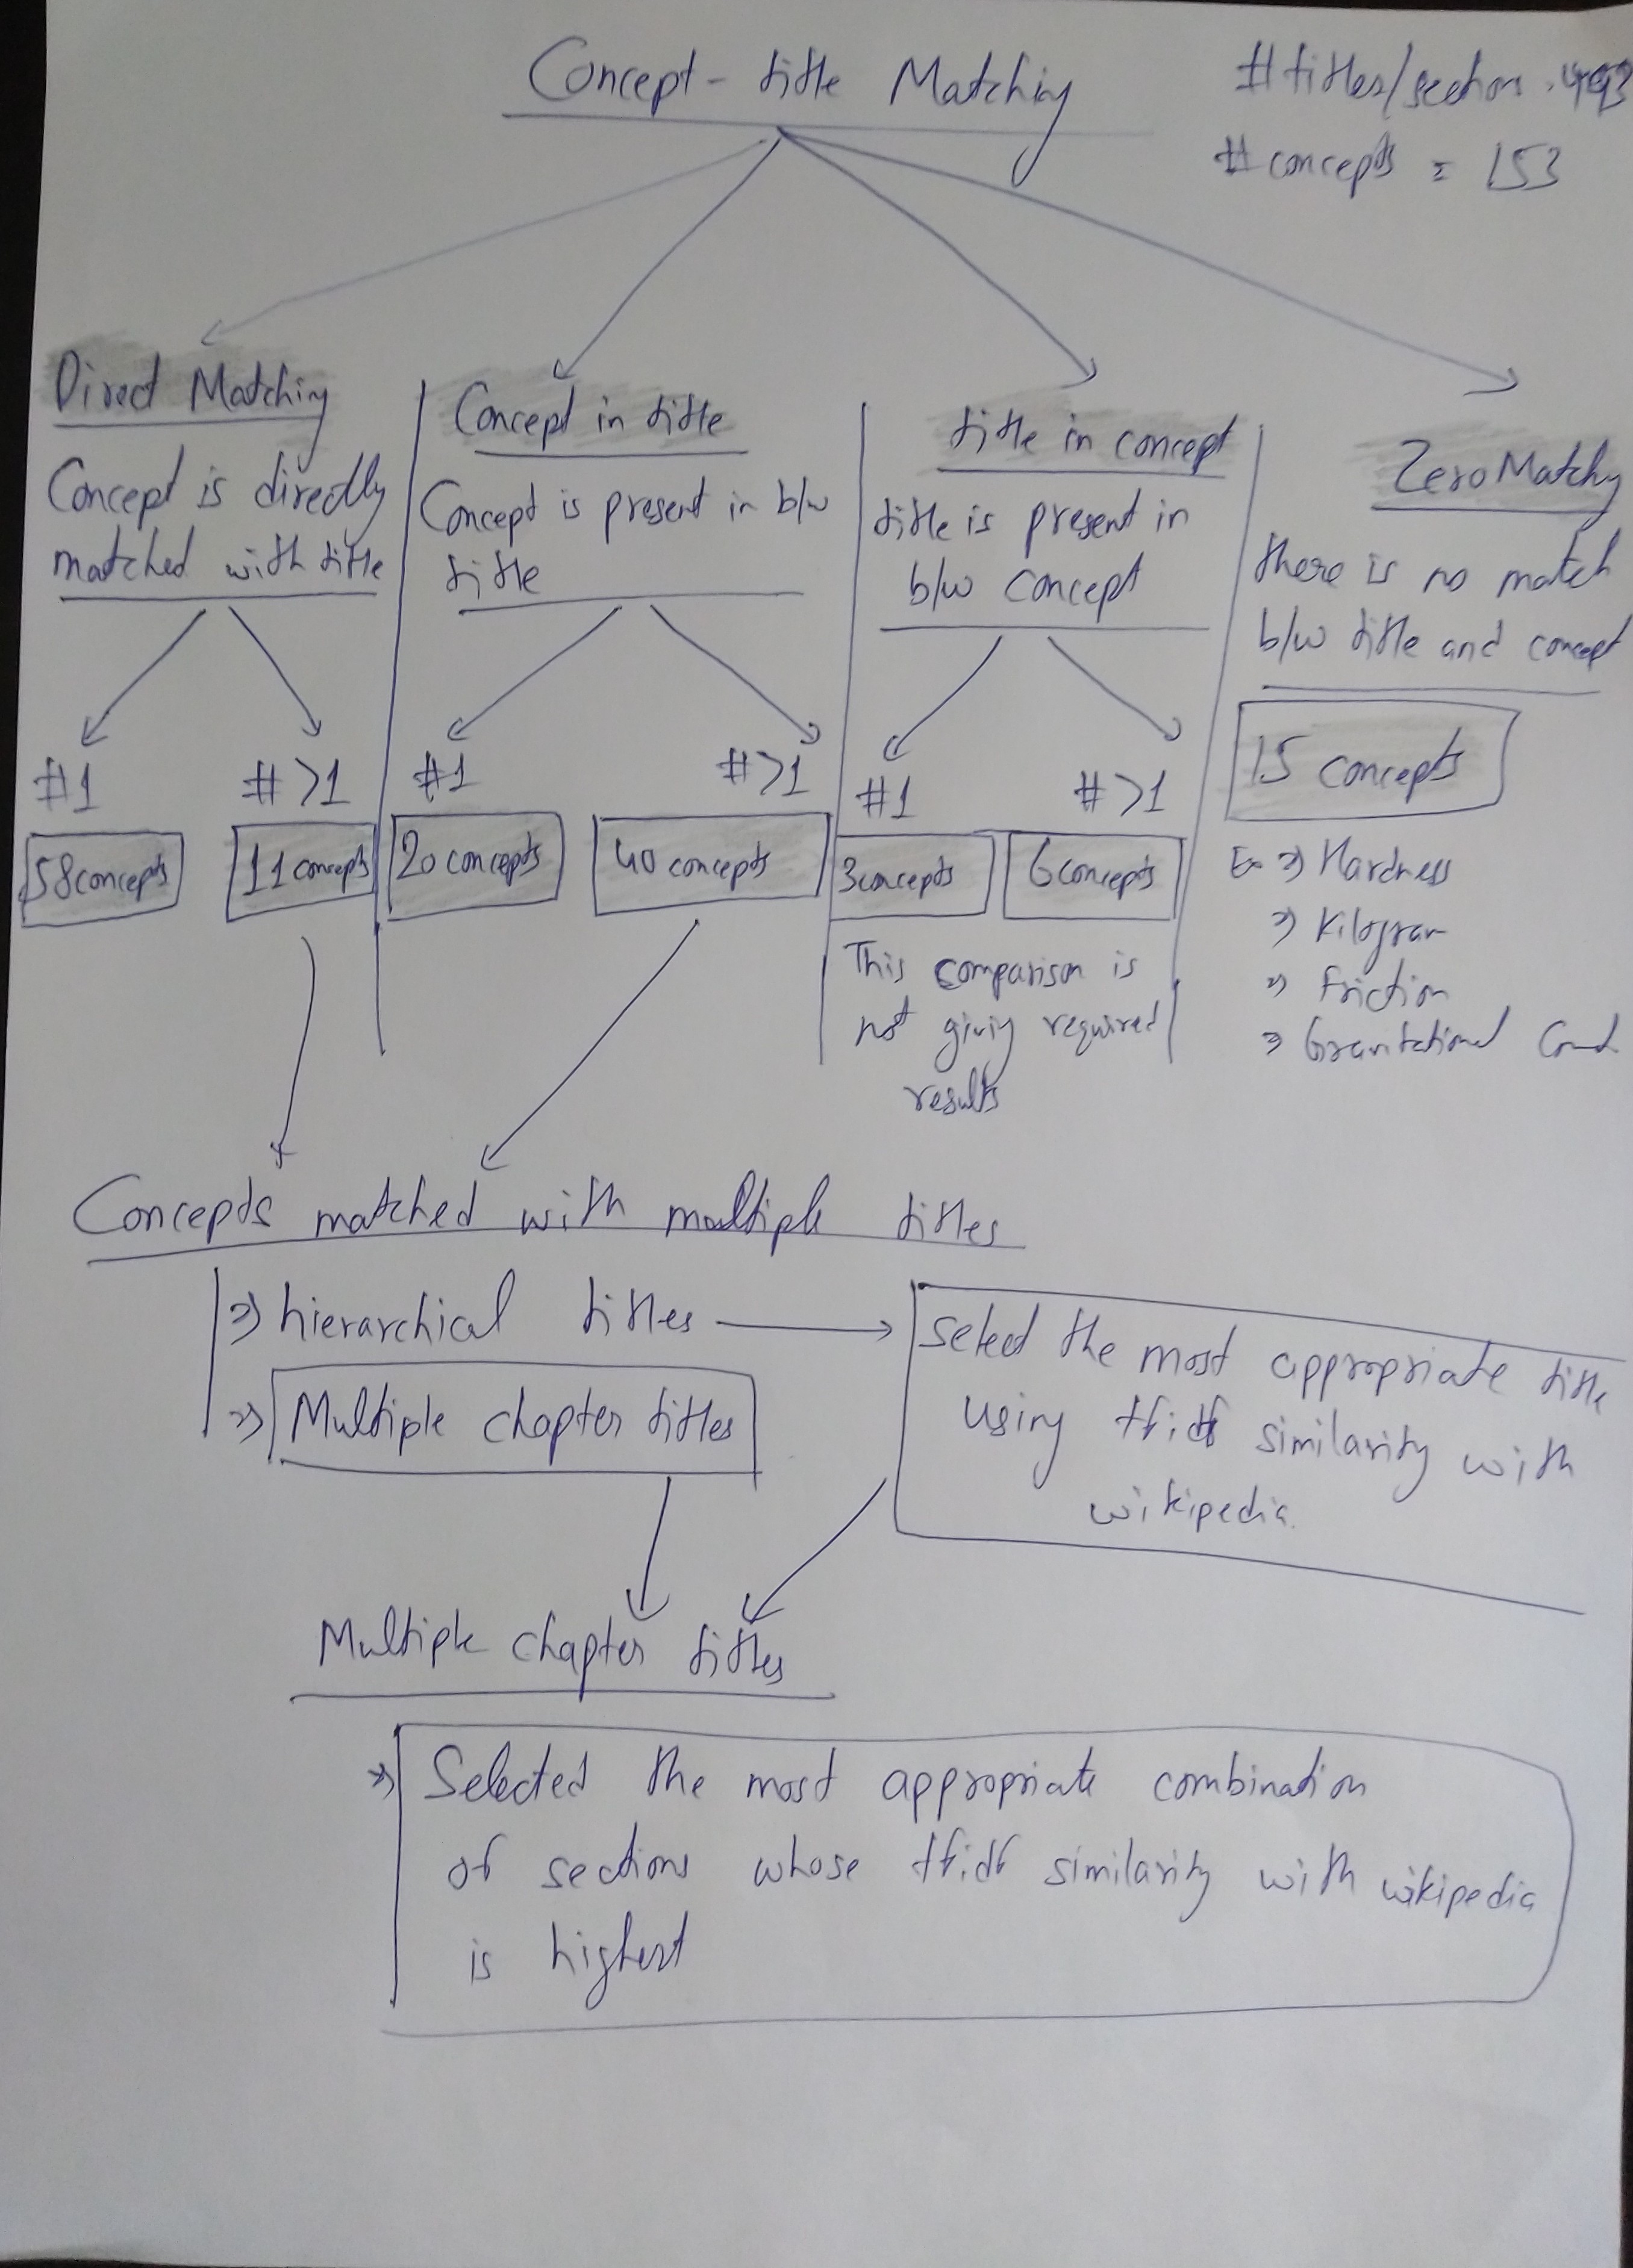 Concept - title Matching
#titles/section
#concepts = 153
Direct Matching
Concept is directly
matched with title
#1
#>1
58 concepts
11 concepts
Concept in title
Concept is present in b/w
title
#1
#>1
20 concepts
40 concepts
title in concept
title is present in
b/w concept
#1
#>1
3 concepts
6 concepts
This comparison is
not giving required
results
Zero Matchy
there is no match
b/w title and concept
15 concepts
Ex => Hardness
=> Kilogram
=> Friction
=> Gravitational
Concepts matched with multiple titles
=> hierarchical titles
=> Multiple chapter titles
Select the most appropriate title
using tfidf similarity with
wikipedia.
Multiple chapter titles
=> Selected the most appropriate combination
of sections whose tfidf similarity with wikipedia
is highest